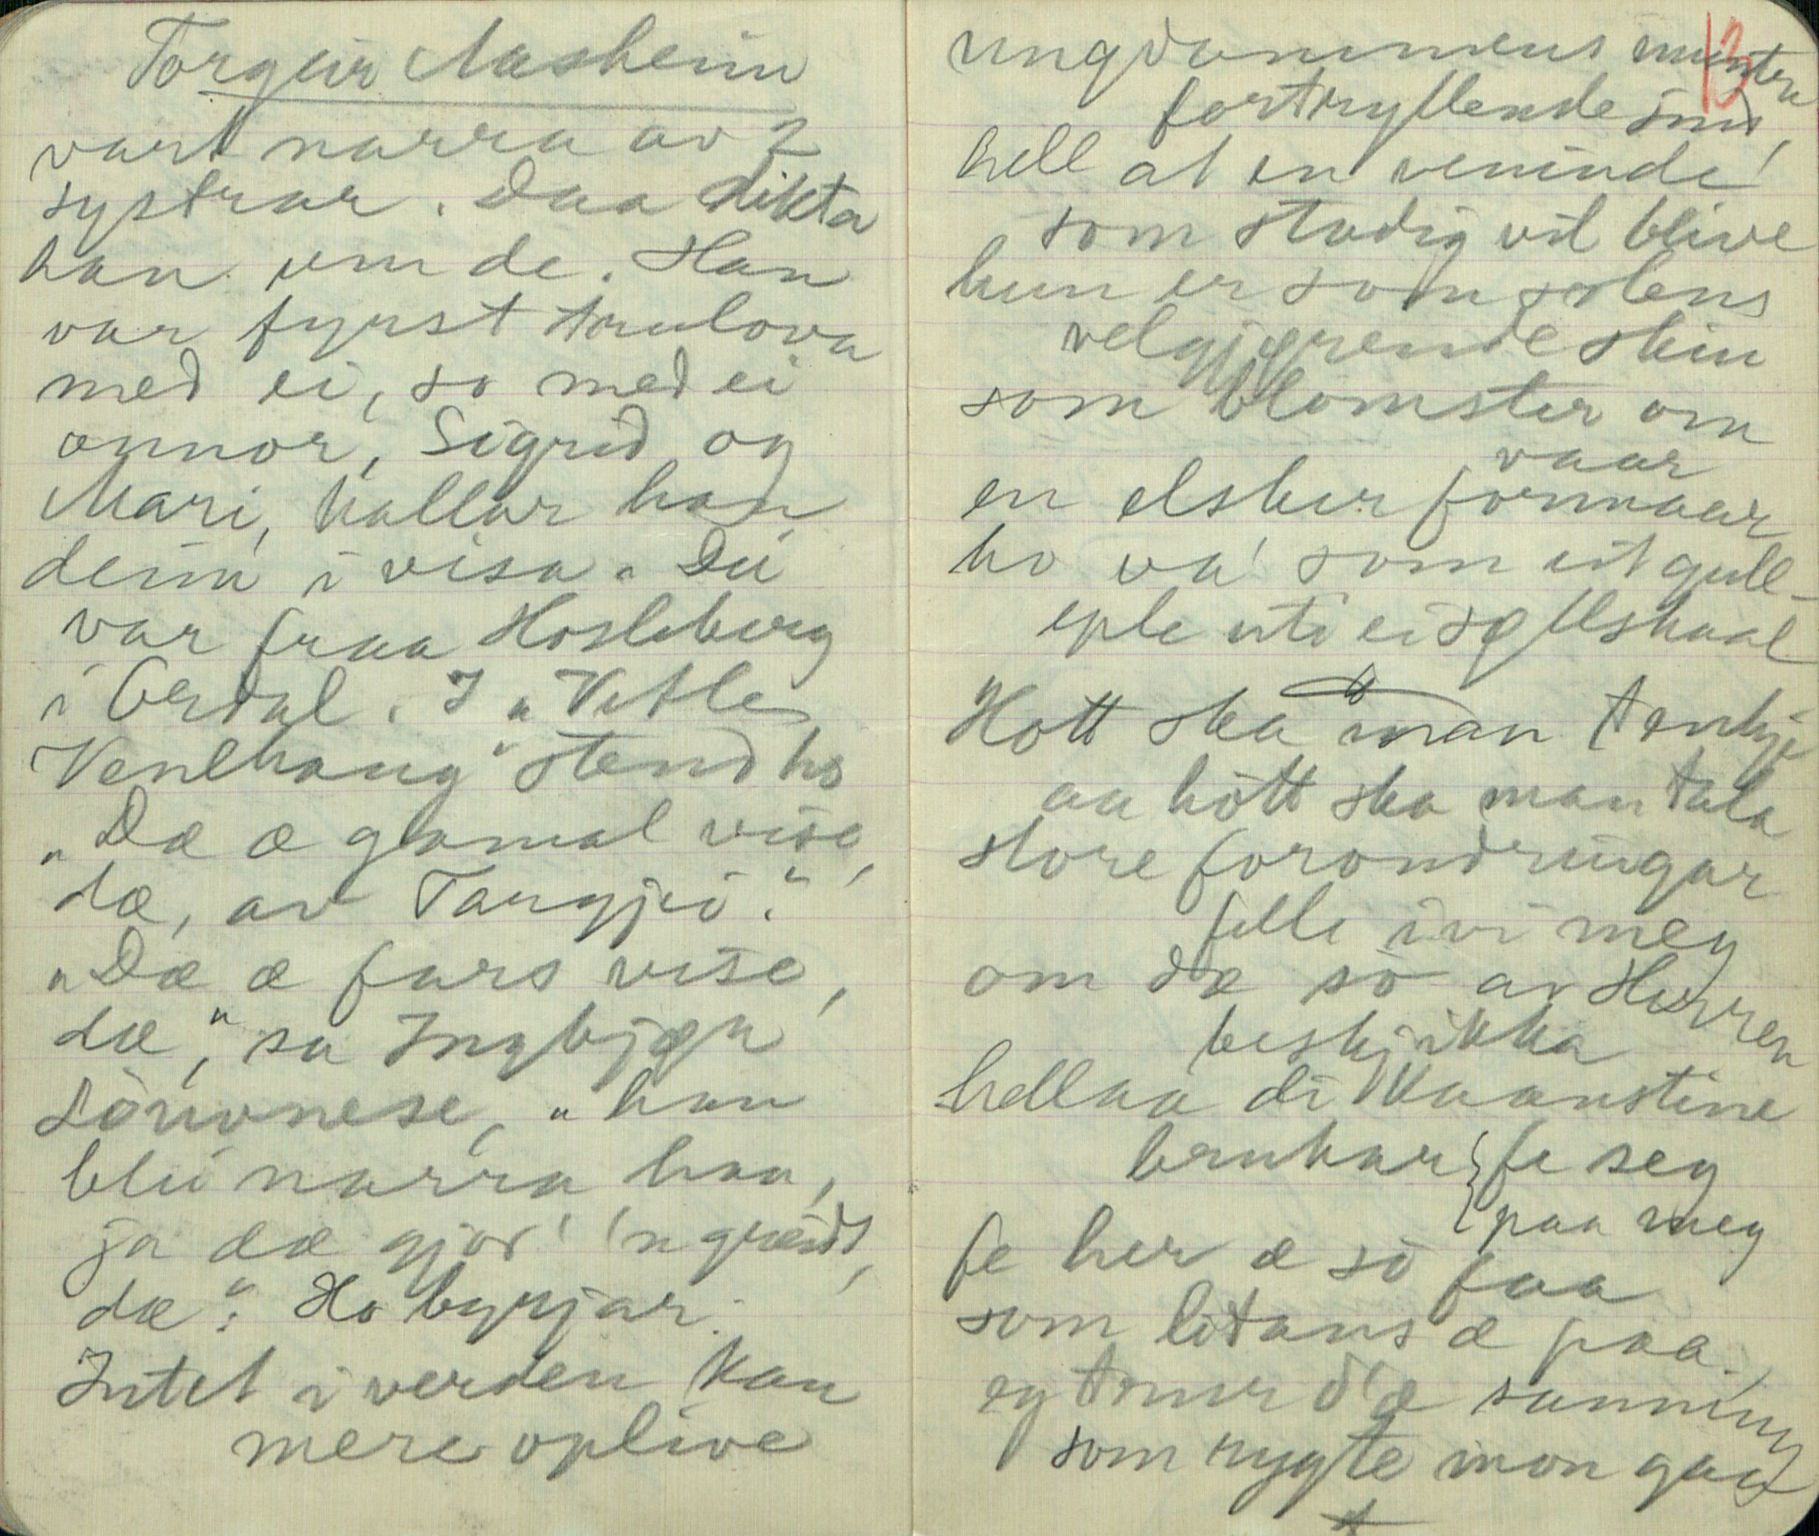 Torgeir Aasheim
vart narra av 2
systrar. Daa dikta
han um de. Han
var fyrst trulova
med ei, so med ei
onnor, Sigrid og
Mari, kallar han
deim i visa. Dei
var fraa Hosleberg
i Ordal. I "Vetle
Venelhaug" stend ho
"Dæ æ gamal vise,
dæ, av Targjei".
"Dæ æ fars vise,
dæ", sa Ingbjørg
"han
blei narra han,
ja dæ gjor' 'n greidt,
dæ". Ho byrjar:
Intet i verden kan
mere oplive
13
ungdommens muntre
fortryllende sind,
hell at en veninde'
som stadig vil blive
hun er som solens
velgjørende skin
som blomster om
vaar
en elsker formaar
ho va' som eit gull-
eple uti ei sølvskaal
Hott ska man tenkje
aa hòtt ska man tala
store forondringar
felle ivi meg
om dæ sò av Herren
beskjikka
hell aa di
brukar { fe seg
{ paa meg
fe her æ sò faa
som litans æ paa.
eg trur d'æ sanning
som rygte mon gaa